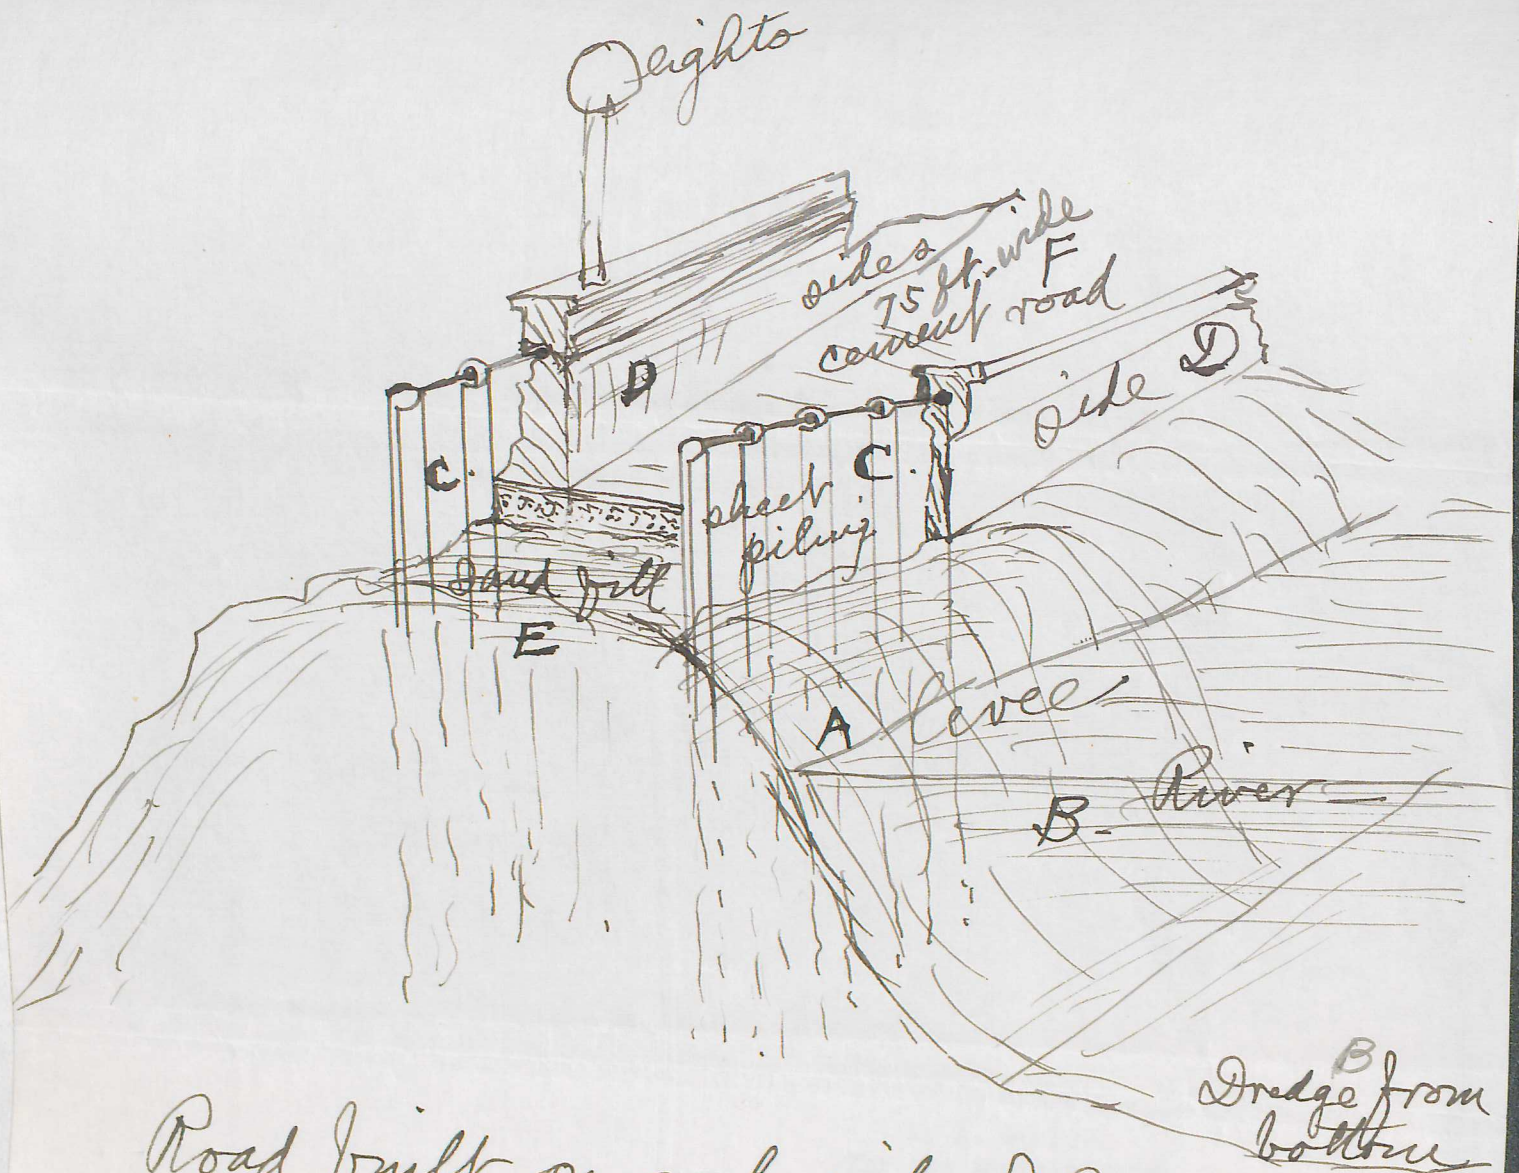 lights
sides
75 ft. wide
F
cement road
D
side D
C.
sheet C.
piling
Sand fill
E
A levee
B - River -
B
Dredge from
bottom
Road built on